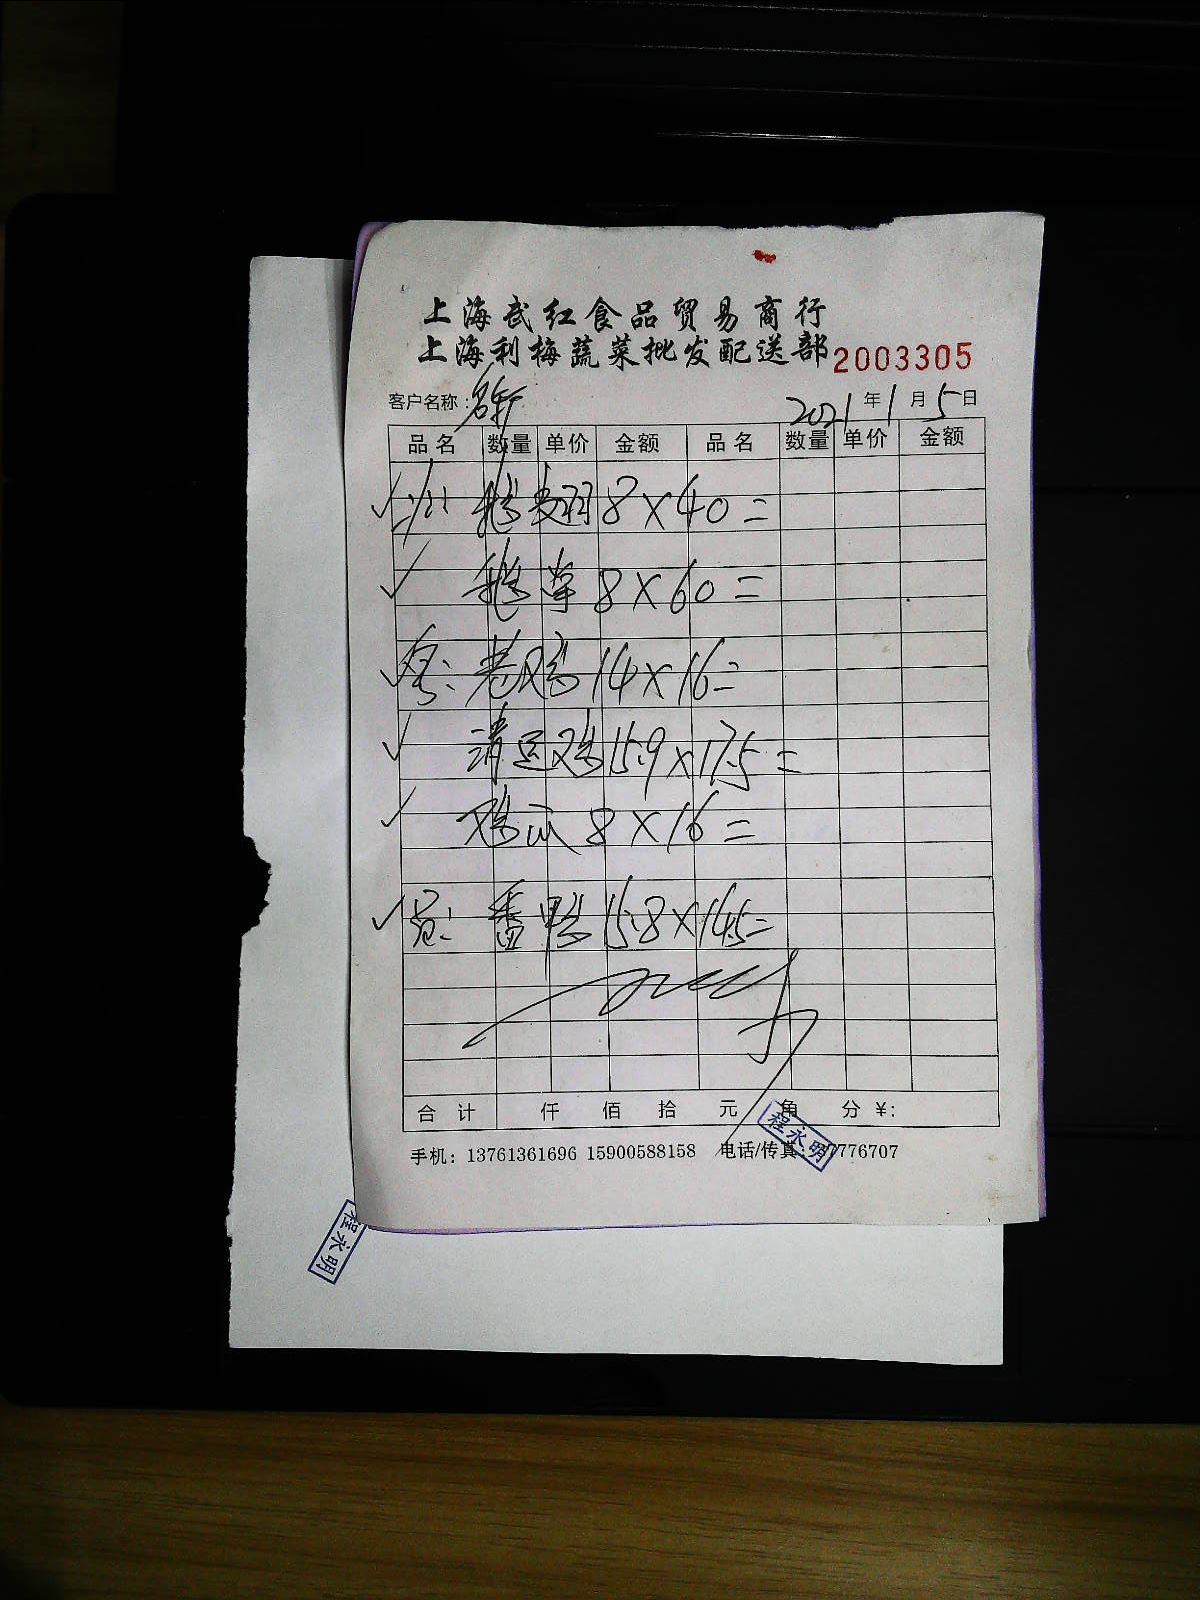 上海武红食品贸易商行
上海利梅蔬菜批发配送部 2003305
客户名称: 名轩 2021年1月5日
品名 数量 单价 金额 品名 数量 单价 金额
✓ 鹅翅 8×40=
✓ 鹅掌 8×60=
✓ 老鸡 14×16=
✓ 清远鸡 15.9×17.5=
✓ 鸡爪 8×16=
✓ 番鸭 15.8×14.5=
合计 仟 佰 拾 元 角 分 ¥:
手机: 13761361696 15900588158 电话/传真: 7776707
程永明
程永明